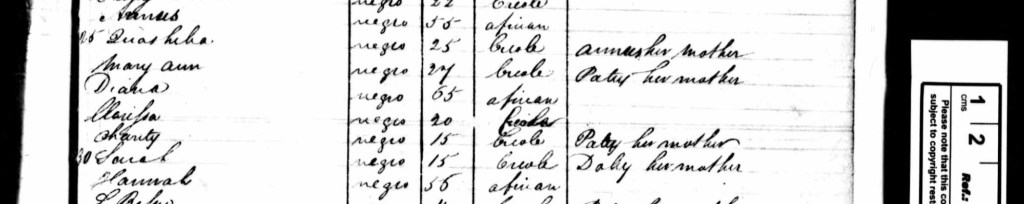 negro 22 Creole
Annus negro 55 african
25 Quasheba. negro 25 Creole annus her mother
Mary ann negro 27 Creole Patey her mother
Diana negro 65 african
Clarissa negro 20 Creole
Charity negro 15 Creole Patey her mother
30 Sarah negro 15 Creole Doby her mother
Hannah negro 56 african
1
cms
2
Ref.:
Please note that this co
subject to copyright rest